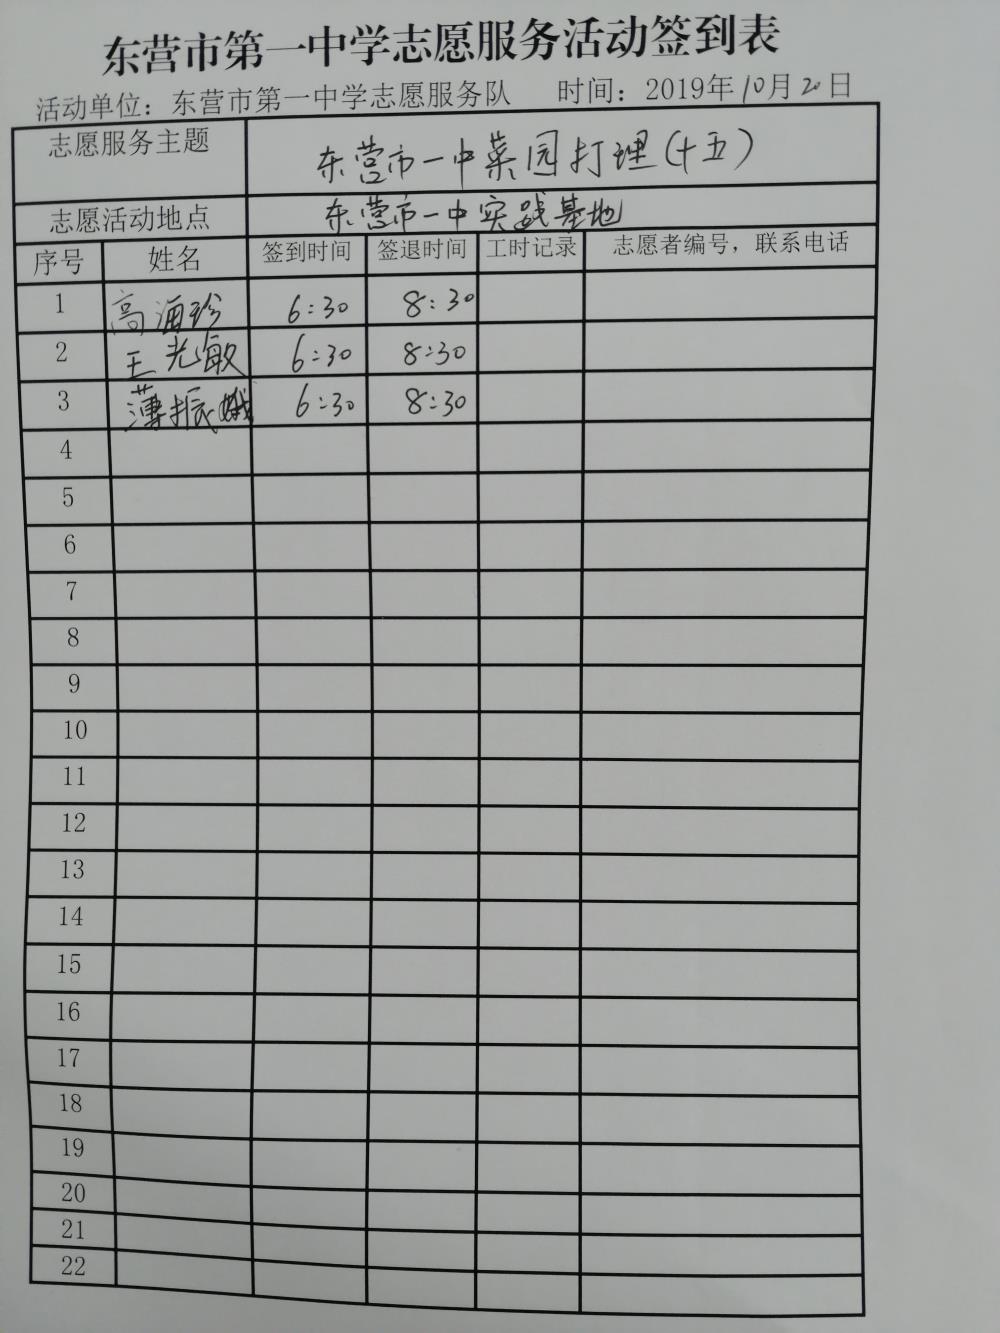 东营市第一中学志愿服务活动签到表
活动单位：东营市第一中学志愿服务队 时间：2019年10月20日
志愿服务主题 东营市一中菜园打理(十五)
志愿活动地点 东营市一中实践基地
序号 姓名 签到时间 签退时间 工时记录 志愿者编号，联系电话
1 高海珍 6:30 8:30
2 王光敏 6:30 8:30
3 薄振娥 6:30 8:30
4
5
6
7
8
9
10
11
12
13
14
15
16
17
18
19
20
21
22